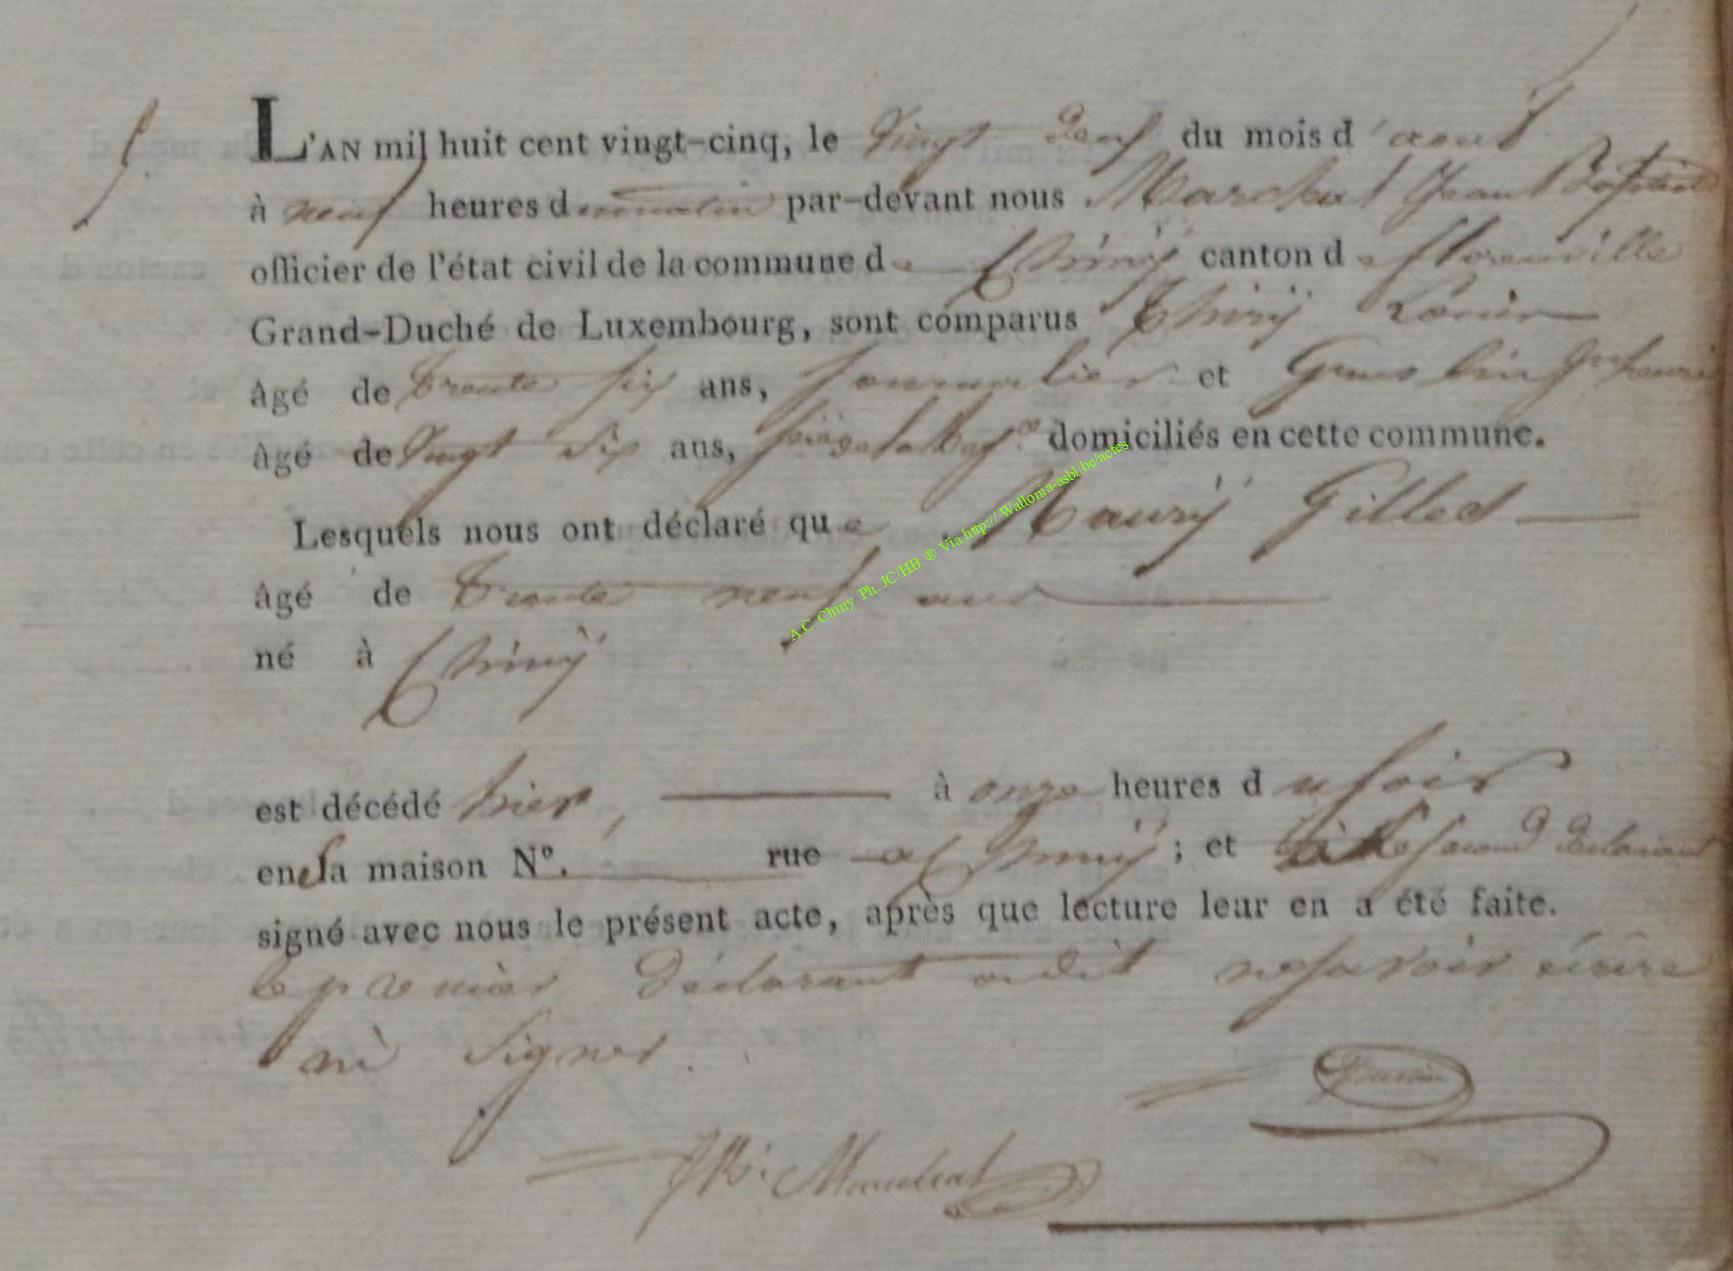 9.
L'AN mil huit cent vingt-cinq, le Vingt neuf du mois d'aout
à neuf heures du matin par-devant nous Marchal Jean Baptiste
officier de l'état civil de la commune de Chinÿ canton de florenville
Grand-Duché de Luxembourg, sont comparus Thirÿ
âgé de trente six ans, journalier et
âgé de Vingt Six ans, domiciliés en cette commune.
Lesquels nous ont déclaré que Maurÿ Gilles
âgé de trente neuf ans
né à Chinÿ
est décédé hier, à onze heures du soir
en sa maison N°. rue a Chinÿ ; et le second déclarant
signé avec nous le présent acte, après que lecture leur en a été faite.
le premier déclarant a dit ne savoir écrire
ni signer.
Marchal
A.C. Chiny Ph. JC/HB ® Via http://Wallonia-asbl.be/actes